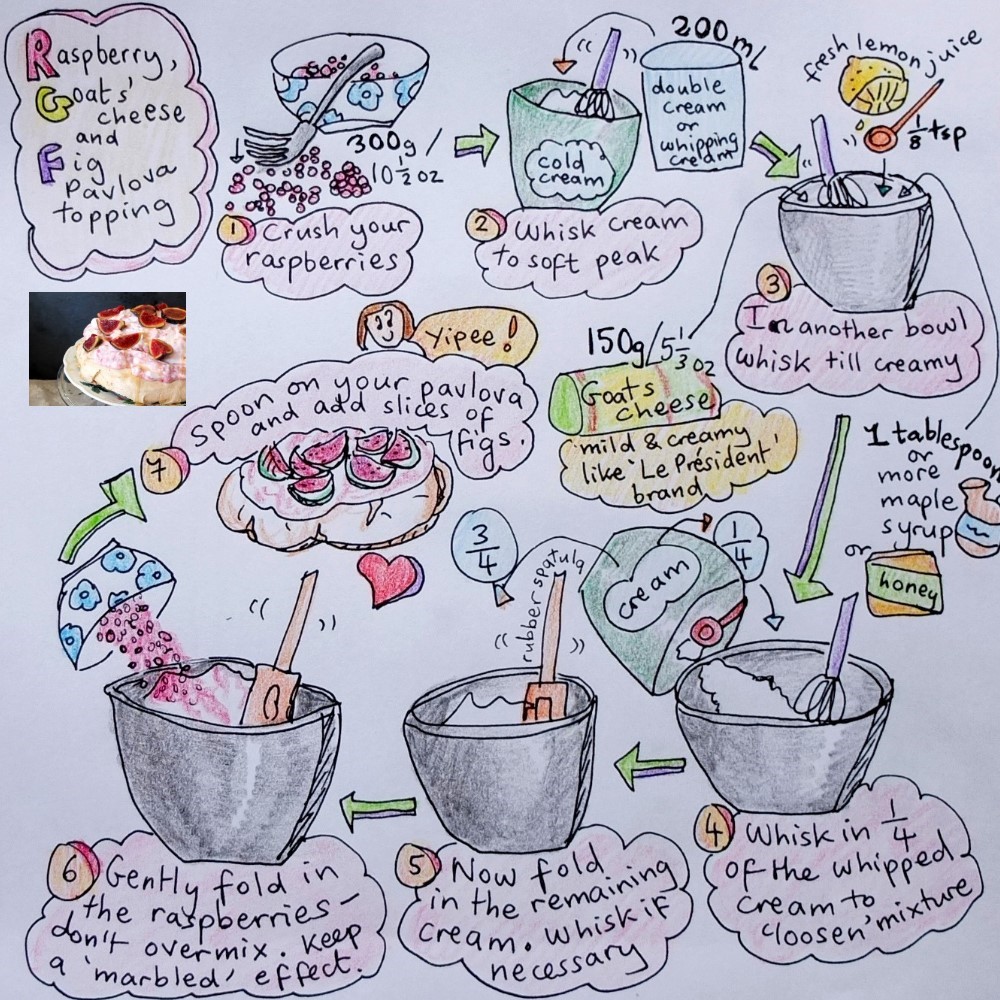 Raspberry,
Goats'
cheese
and
Fig
pavlova
topping
300g/
10 1/2 oz
1 Crush your
raspberries
200ml
double
cream
or
whipping
cream
cold
cream
2 Whisk cream
to soft peak
fresh lemon juice
1/8 tsp
3
In another bowl
whisk till creamy
150g/5 1/3 oz
Goats
cheese
'mild & creamy'
like 'Le Président'
brand
1 tablespoon
or
more
maple
syrup
or
honey
1/4
cream
4 Whisk in 1/4
of the whipped
cream to
'loosen' mixture
3/4
rubber spatula
5 Now fold
in the remaining
cream. Whisk if
necessary
6 Gently fold in
the raspberries -
don't overmix. Keep
a 'marbled' effect.
7
Spoon on your pavlova
and add slices of
figs.
Yipee!